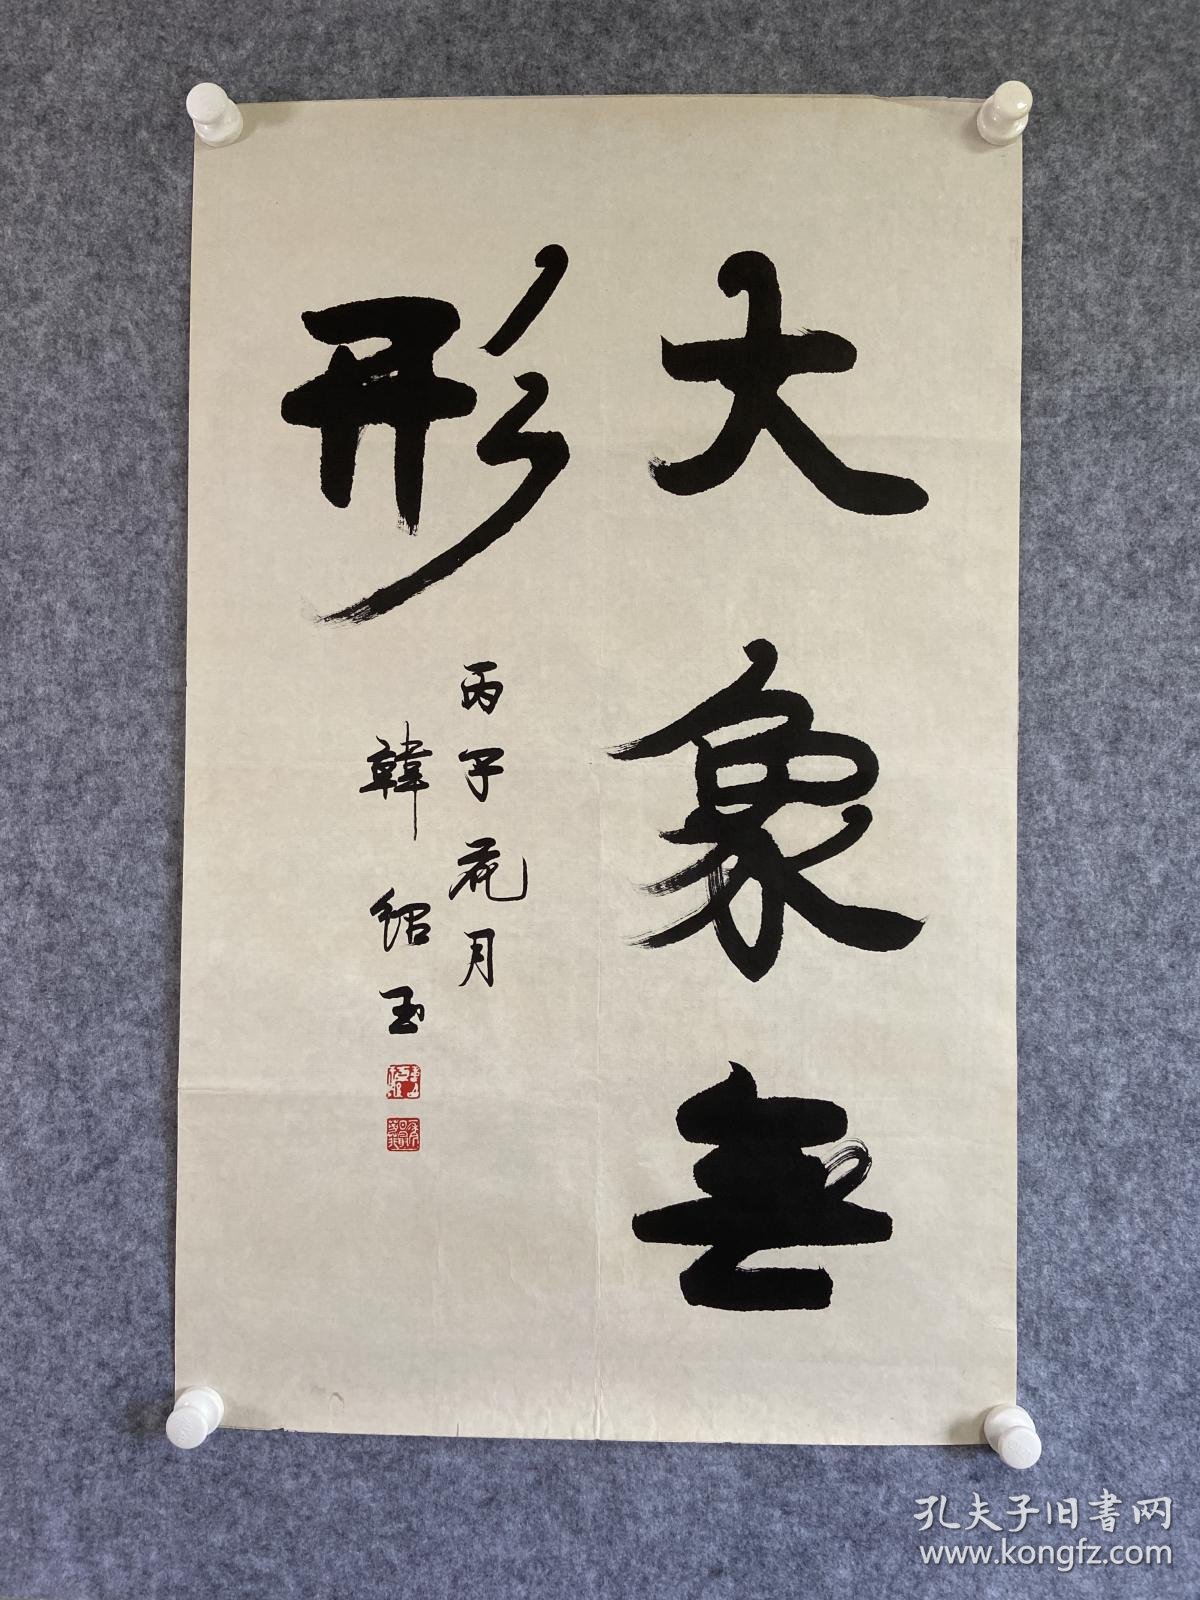 大象無
形
丙子花月
韓紹玉
孔夫子旧書网
www.kongfz.com